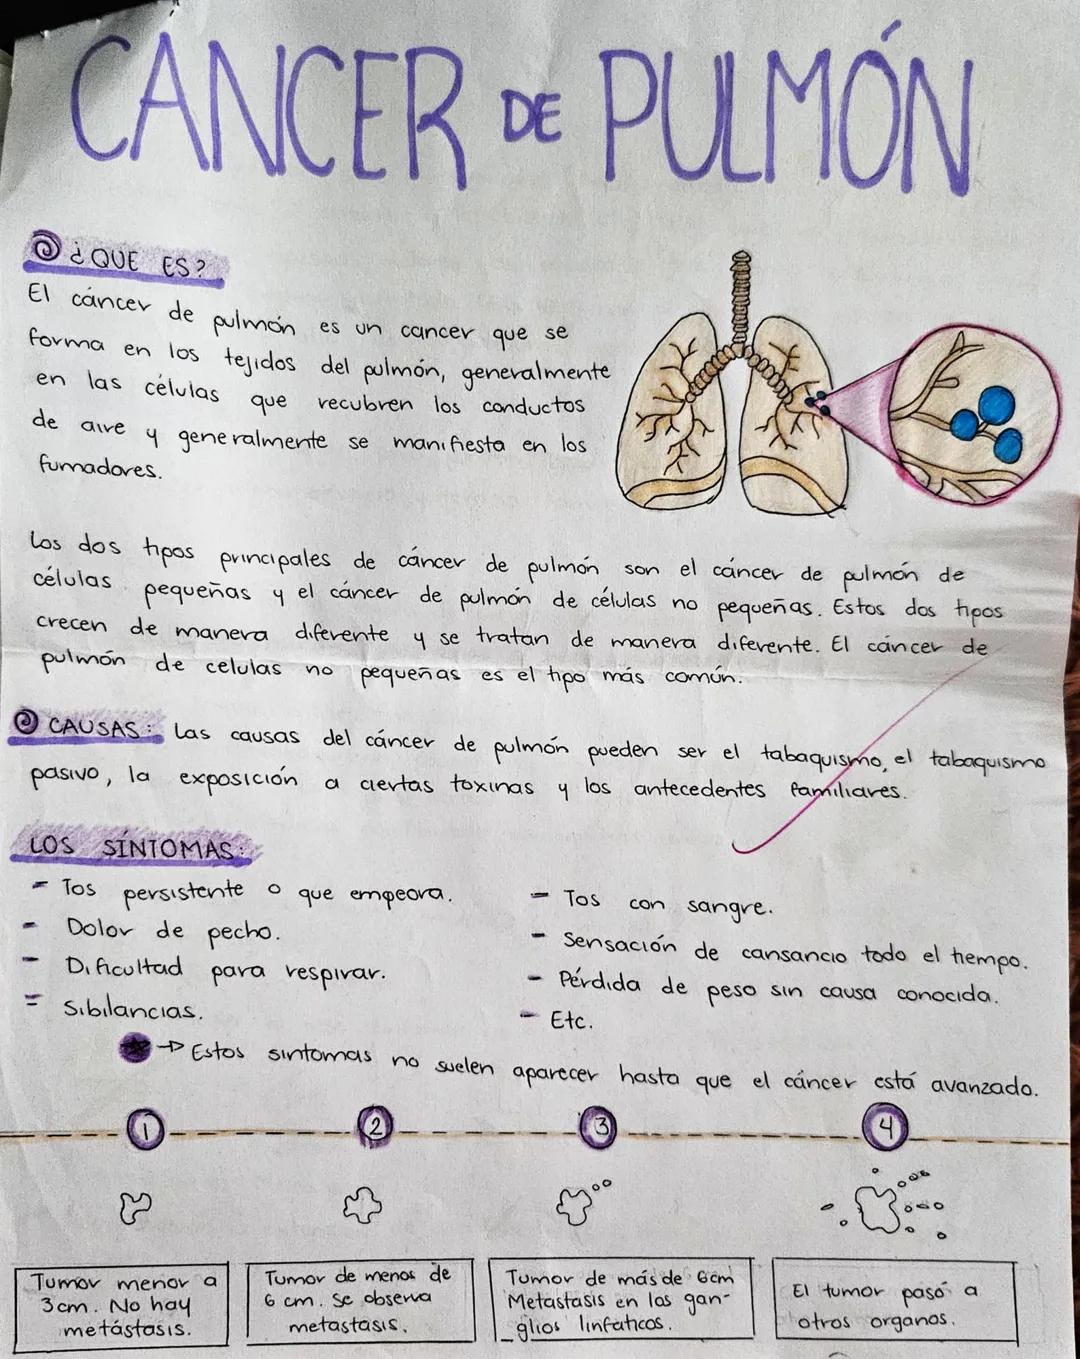 CÁNCER DE PULMÓN
¿QUE ES?
El cáncer de pulmón es un cancer que se
forma en los tejidos del pulmón, generalmente
en las células que recubren los conductos
de aire y generalmente se manifiesta en los
fumadores.
Los dos tipos principales de cáncer de pulmón son el cáncer de pulmón de
células pequeñas y el cáncer de pulmón de células no pequeñas. Estos dos tipos
crecen de manera diferente y se tratan de manera diferente. El cáncer de
pulmón de celulas no pequeñas es el tipo más común.
CAUSAS: Las causas del cáncer de pulmón pueden ser el tabaquismo, el tabaquismo
pasivo, la exposición a ciertas toxinas y los antecedentes familiares.
LOS SÍNTOMAS:
- Tos persistente o que empeora.
- Dolor de pecho.
- Dificultad para respirar.
- Sibilancias.
- Tos con sangre.
- Sensación de cansancio todo el tiempo.
- Pérdida de peso sin causa conocida.
- Etc.
→ Estos sintomas no suelen aparecer hasta que el cáncer está avanzado.
1 2 3 4
Tumor menor a
3cm. No hay
metástasis.
Tumor de menos de
6 cm. Se observa
metastasis.
Tumor de más de 6cm
Metastasis en los gan-
glios linfaticos.
El tumor pasó a
otros organos.